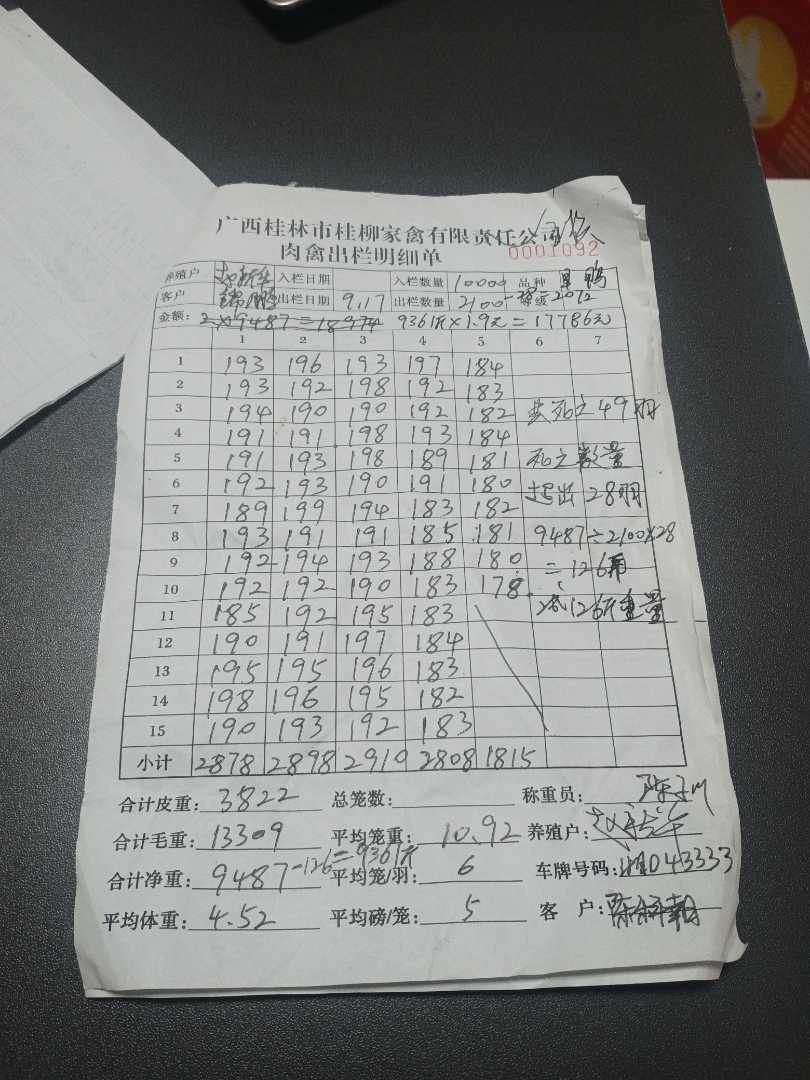 广西桂林市桂柳家禽有限责任公司
肉禽出栏明细单 0001092
养殖户 入栏日期 入栏数量 10000 品种 鸭
客户 出栏日期 9.17 出栏数量 2100 等级
金额: 2×9487=18974 9361斤×1.9元=17786元
1 2 3 4 5 6 7
1 193 196 193 197 184
2 193 192 198 192 183
3 194 190 190 192 182 死亡49羽
4 191 191 198 193 184
5 191 193 198 189 181 死亡数量
6 192 193 190 191 180 超出28羽
7 189 199 194 183 182
8 193 191 191 185 181 9487÷2100×28
9 192 194 193 188 180 =126斤
10 192 192 190 183 178 减126斤重量
11 185 192 195 183
12 190 191 197 184
13 195 195 196 183
14 198 196 195 182
15 190 193 192 183
小计 2878 2898 2910 2808 1815
合计皮重: 3822 总笼数: 称重员:
合计毛重: 13309 平均笼重: 10.92 养殖户:
合计净重: 9487-126=9361斤 平均笼/羽: 6 车牌号码: 043333
平均体重: 4.52 平均磅/笼: 5 客 户: